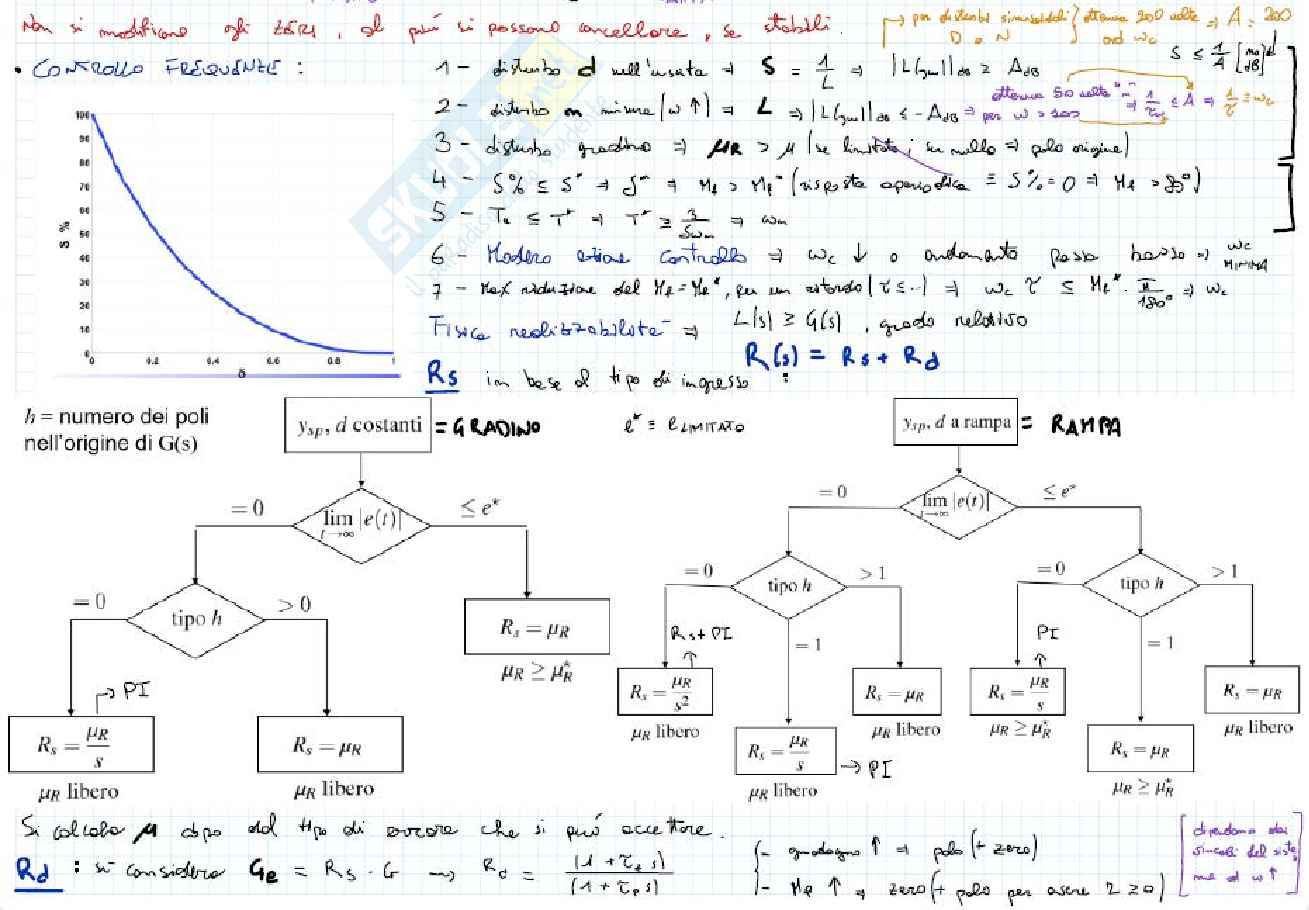 Non si modificano gli ZERI, al più si possono cancellare, se stabili.
per disturbi sinusoidali D o N } attenua 200 volte ad ωc ⇒ A = 200
• CONTROLLO FREQUENZE :
1 - disturbo d sull'uscita → S = 1/L ⇒ |L(jω)|dB ≥ AdB
S ≤ 1/A [no dB]
2 - disturbo on misura (ω↑) ⇒ L ⇒ |L(jω)|dB ≤ -AdB ⇒
attenua 50 volte "n" per ω > 100
3 - disturbo gradino ⇒ μR > μ (se limitato; se nullo ⇒ polo origine)
4 - S% ≤ S* → δ* → Mf > Mf* (risposta aperiodica ≡ S% = 0 ⇒
5 - Ta ≤ T* → T* ≥ 3/δωn ⇒ ωn
6 - Modera azione controllo ⇒ ωc ↓ o andamento passa basso ⇒ ωc MINIMA
7 - Max riduzione del Mf = Mf*, per un ritardo (τ ≤ ..) ⇒ ωc τ ≤ Mf* · π/180° ⇒ ωc
Fisica realizzabilità ⇒ L(s) ≥ G(s), grado relativo
R(s) = Rs + Rd
Rs in base al tipo di ingresso :
S %
100
90
80
70
60
50
40
30
20
10
0
0 0.2 0.4 0.6 0.8 1
δ
SKUOLA.net
h = numero dei poli
nell'origine di G(s)
ysp, d costanti = GRADINO
e* ≡ e LIMITATO
ysp, d a rampa = RAMPA
= 0
lim t→∞ |e(t)|
≤ e*
= 0
lim t→∞ |e(t)|
≤ e*
= 0
tipo h
> 0
Rs = μR
μR ≥ μ*R
= 0
tipo h
> 1
= 1
= 0
tipo h
> 1
= 1
→ PI
Rs = μR/s
μR libero
Rs = μR
μR libero
Rs + PI
Rs = μR/s²
μR libero
Rs = μR/s → PI
μR libero
Rs = μR
μR libero
PI
Rs = μR/s
μR ≥ μ*R
Rs = μR
μR ≥ μ*R
Rs = μR
μR libero
Si calcola μ dopo dal tipo di errore che si può accettare.
Rd : si considera Ge = Rs · G → Rd = (1 + τz s)/(1 + τp s)
- guadagno ↑ ⇒ polo (+ zero)
- Mf ↑ ⇒ zero (+ polo per avere
dipendono dai vincoli del sistema ad ω↑